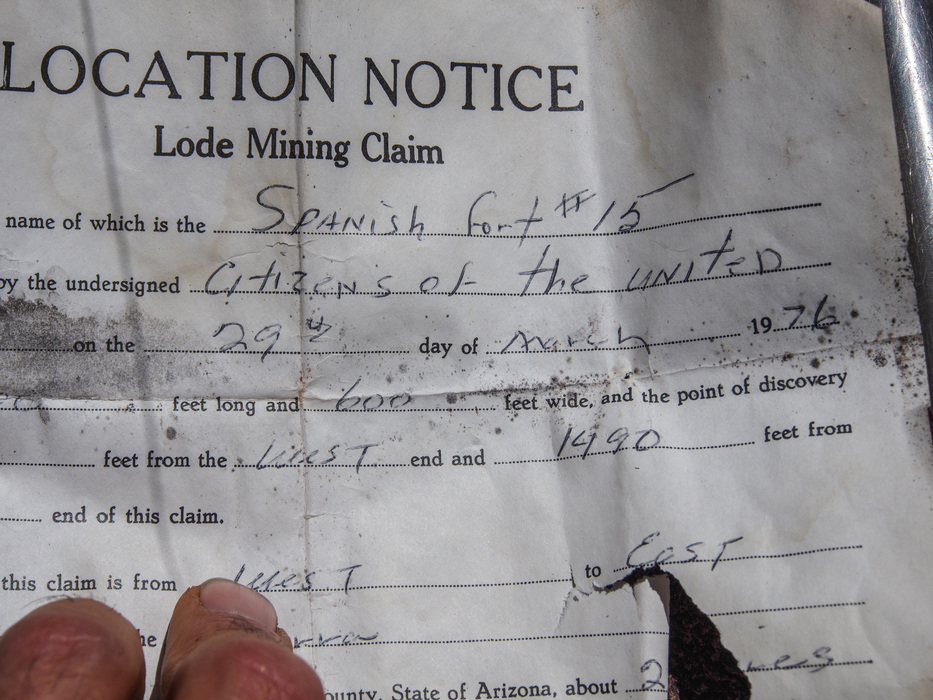 LOCATION NOTICE
Lode Mining Claim
name of which is the SPANISh fort #15
by the undersigned CitizeNS of the UNITED
on the 29th day of March 1976
feet long and 600 feet wide, and the point of discovery
feet from the West end and 1490 feet from
end of this claim.
this claim is from West to EasT
he
ounty, State of Arizona, about 2